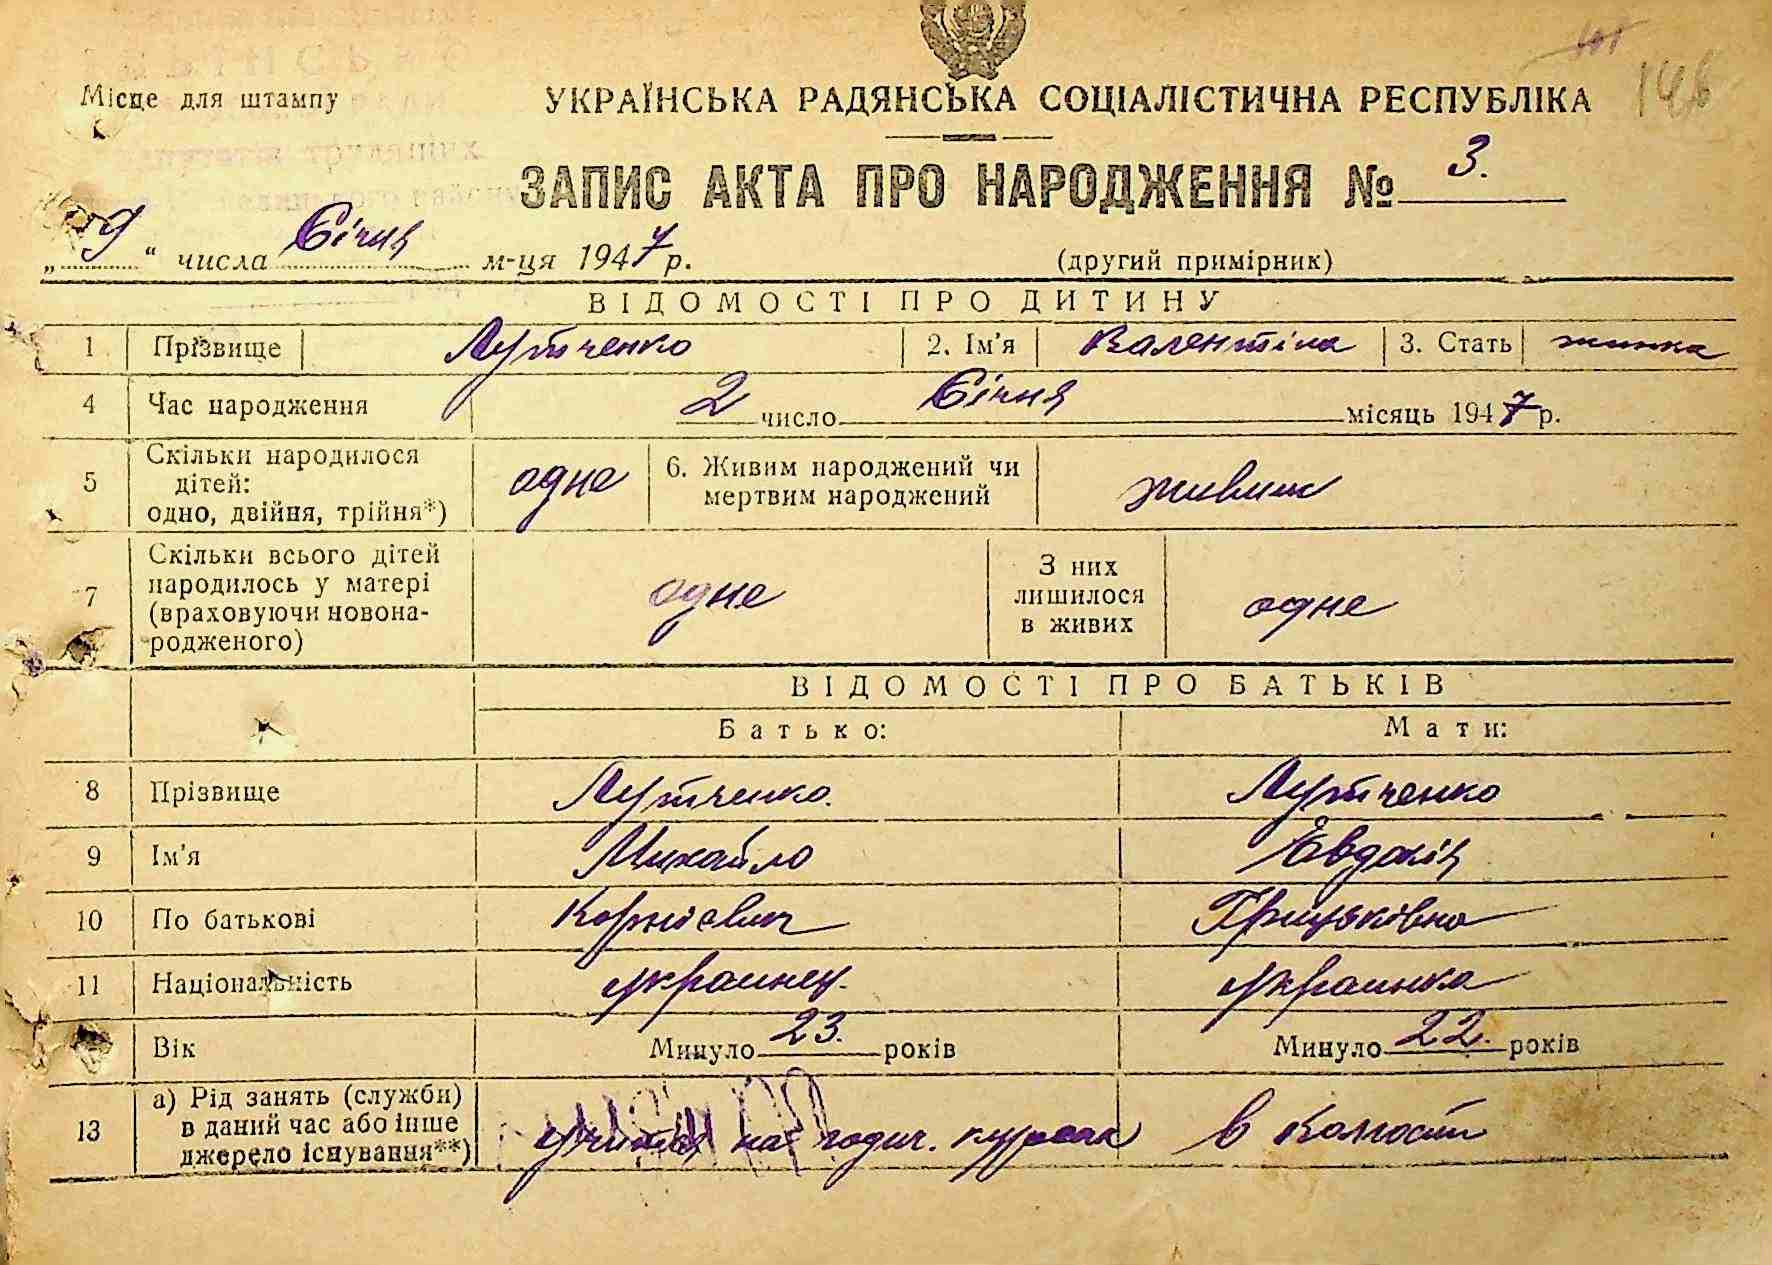 146
Місце для штампу
УКРАЇНСЬКА РАДЯНСЬКА СОЦІАЛІСТИЧНА РЕСПУБЛІКА
ЗАПИС АКТА ПРО НАРОДЖЕННЯ № 3.
„ 9 “ числа Січня м-ця 1947 р.
(другий примірник)
ВІДОМОСТІ ПРО ДИТИНУ
1 Прізвище Лутченко 2. Ім'я Валентіна 3. Стать жинка
4 Час народження 2 число Січня місяць 1947 р.
5 Скільки народилося дітей: одно, двійня, трійня*) одне 6. Живим народжений чи мертвим народжений живим
7 Скільки всього дітей народилось у матері (враховуючи новонародженого) одне З них лишилося в живих одне
ВІДОМОСТІ ПРО БАТЬКІВ
Батько: Мати:
8 Прізвище Лутченко. Лутченко
9 Ім'я Михайло Евдокія
10 По батькові Корнієвич Грицьківна
11 Національність украинец. украинка
Вік Минуло 23. років Минуло 22. років
13 а) Рід занять (служби) в даний час або інше джерело існування**) учиться на годич. курсах в колгоспі